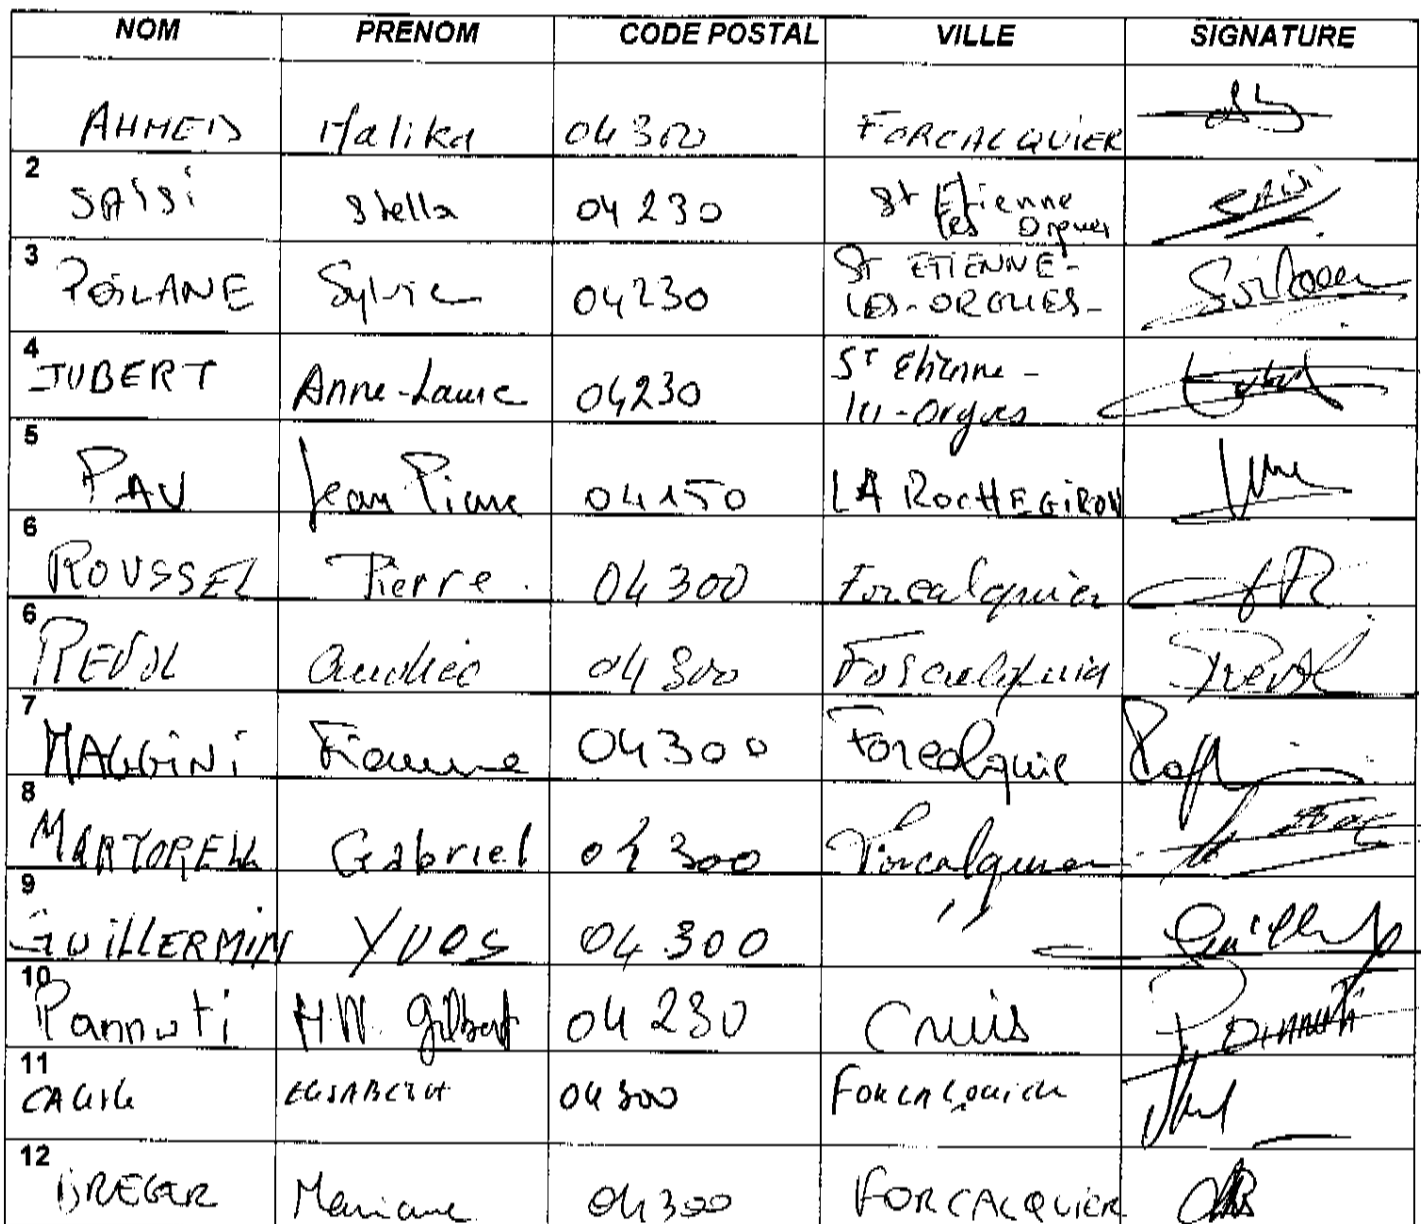 NOM PRENOM CODE POSTAL VILLE SIGNATURE
AHMED Malika 04300 FORCALQUIER
2 SAÏSI Stella 04230 St Etienne les Orgues
3 POILANE Sylvie 04230 ST ETIENNE-LES-ORGUES-
4 JUBERT Anne-Laure 04230 ST Etienne-les-Orgues
5 PAU Jean Pierre 04150 LA ROCHEGIRON
6 ROUSSEL Pierre. 04300 Forcalquier
6 REVOL 04300 Forcalquier Revol
7 MAGGINI 04300 Forcalquier
8 MARTORELL Gabriel 04300 Forcalquier
9 GUILLERMIN YVES 04300 "
10 Pannuti Gilbert 04230 Cruis Pannuti
11 ELISABETH 04300 FORCALQUIER
12 BREGER Mariane 04300 FORCALQUIER